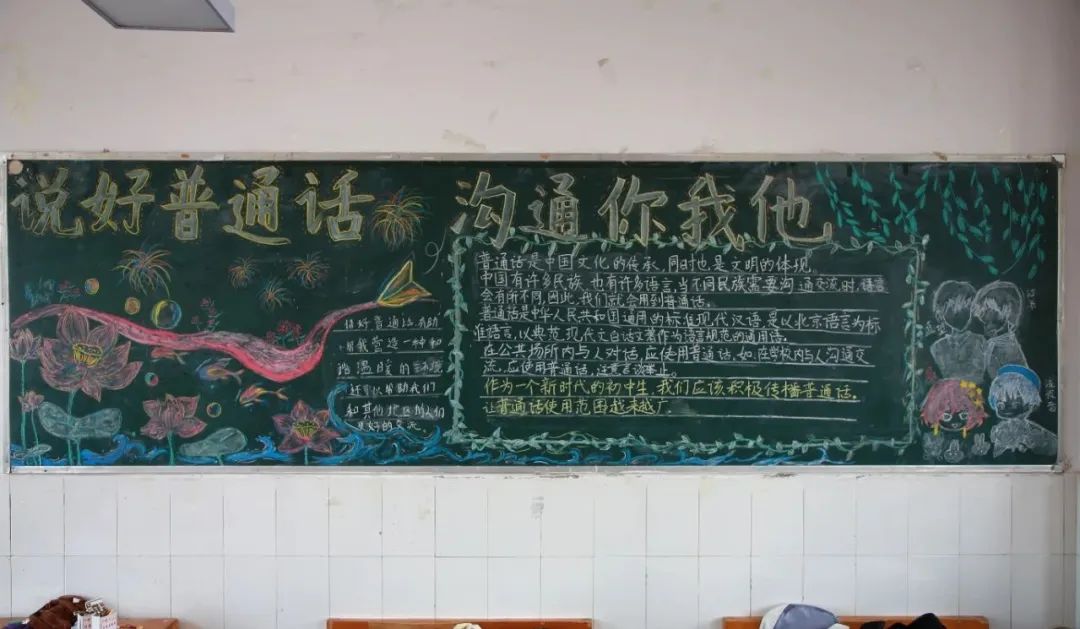 说好普通话
沟通你我他
说好普通话，有助
用我营造一种和
谐温暖的环境
还可以帮助我们
和其他地区的人们
更好的交流。
普通话是中国文化的传承，同时也是文明的体现。
中国有许多民族，也有许多语言，当不同民族需要沟通交流时，语言
会有所不同，因此，我们就会用到普通话。
普通话是中华人民共和国通用的标准现代汉语，是以北京语言为标
准语言，以典范现代文白话文著作为语言规范的通用语。
在公共场所内与人对话，应使用普通话，如：在学校内与人沟通交
流，应使用普通话，注意言谈举止。
作为一个新时代的初中生，我们应该积极传播普通话。
让普通话使用范围越来越广。